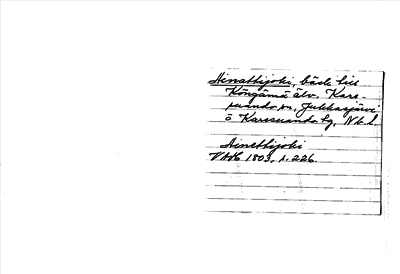 Hinattijoki, bäck till
Köngämä älv. Kare-
suando sn, Jukkasjärvi
o Karesuando tg, Nb. l.
Hinettijoki
VAH 1803, s. 226.